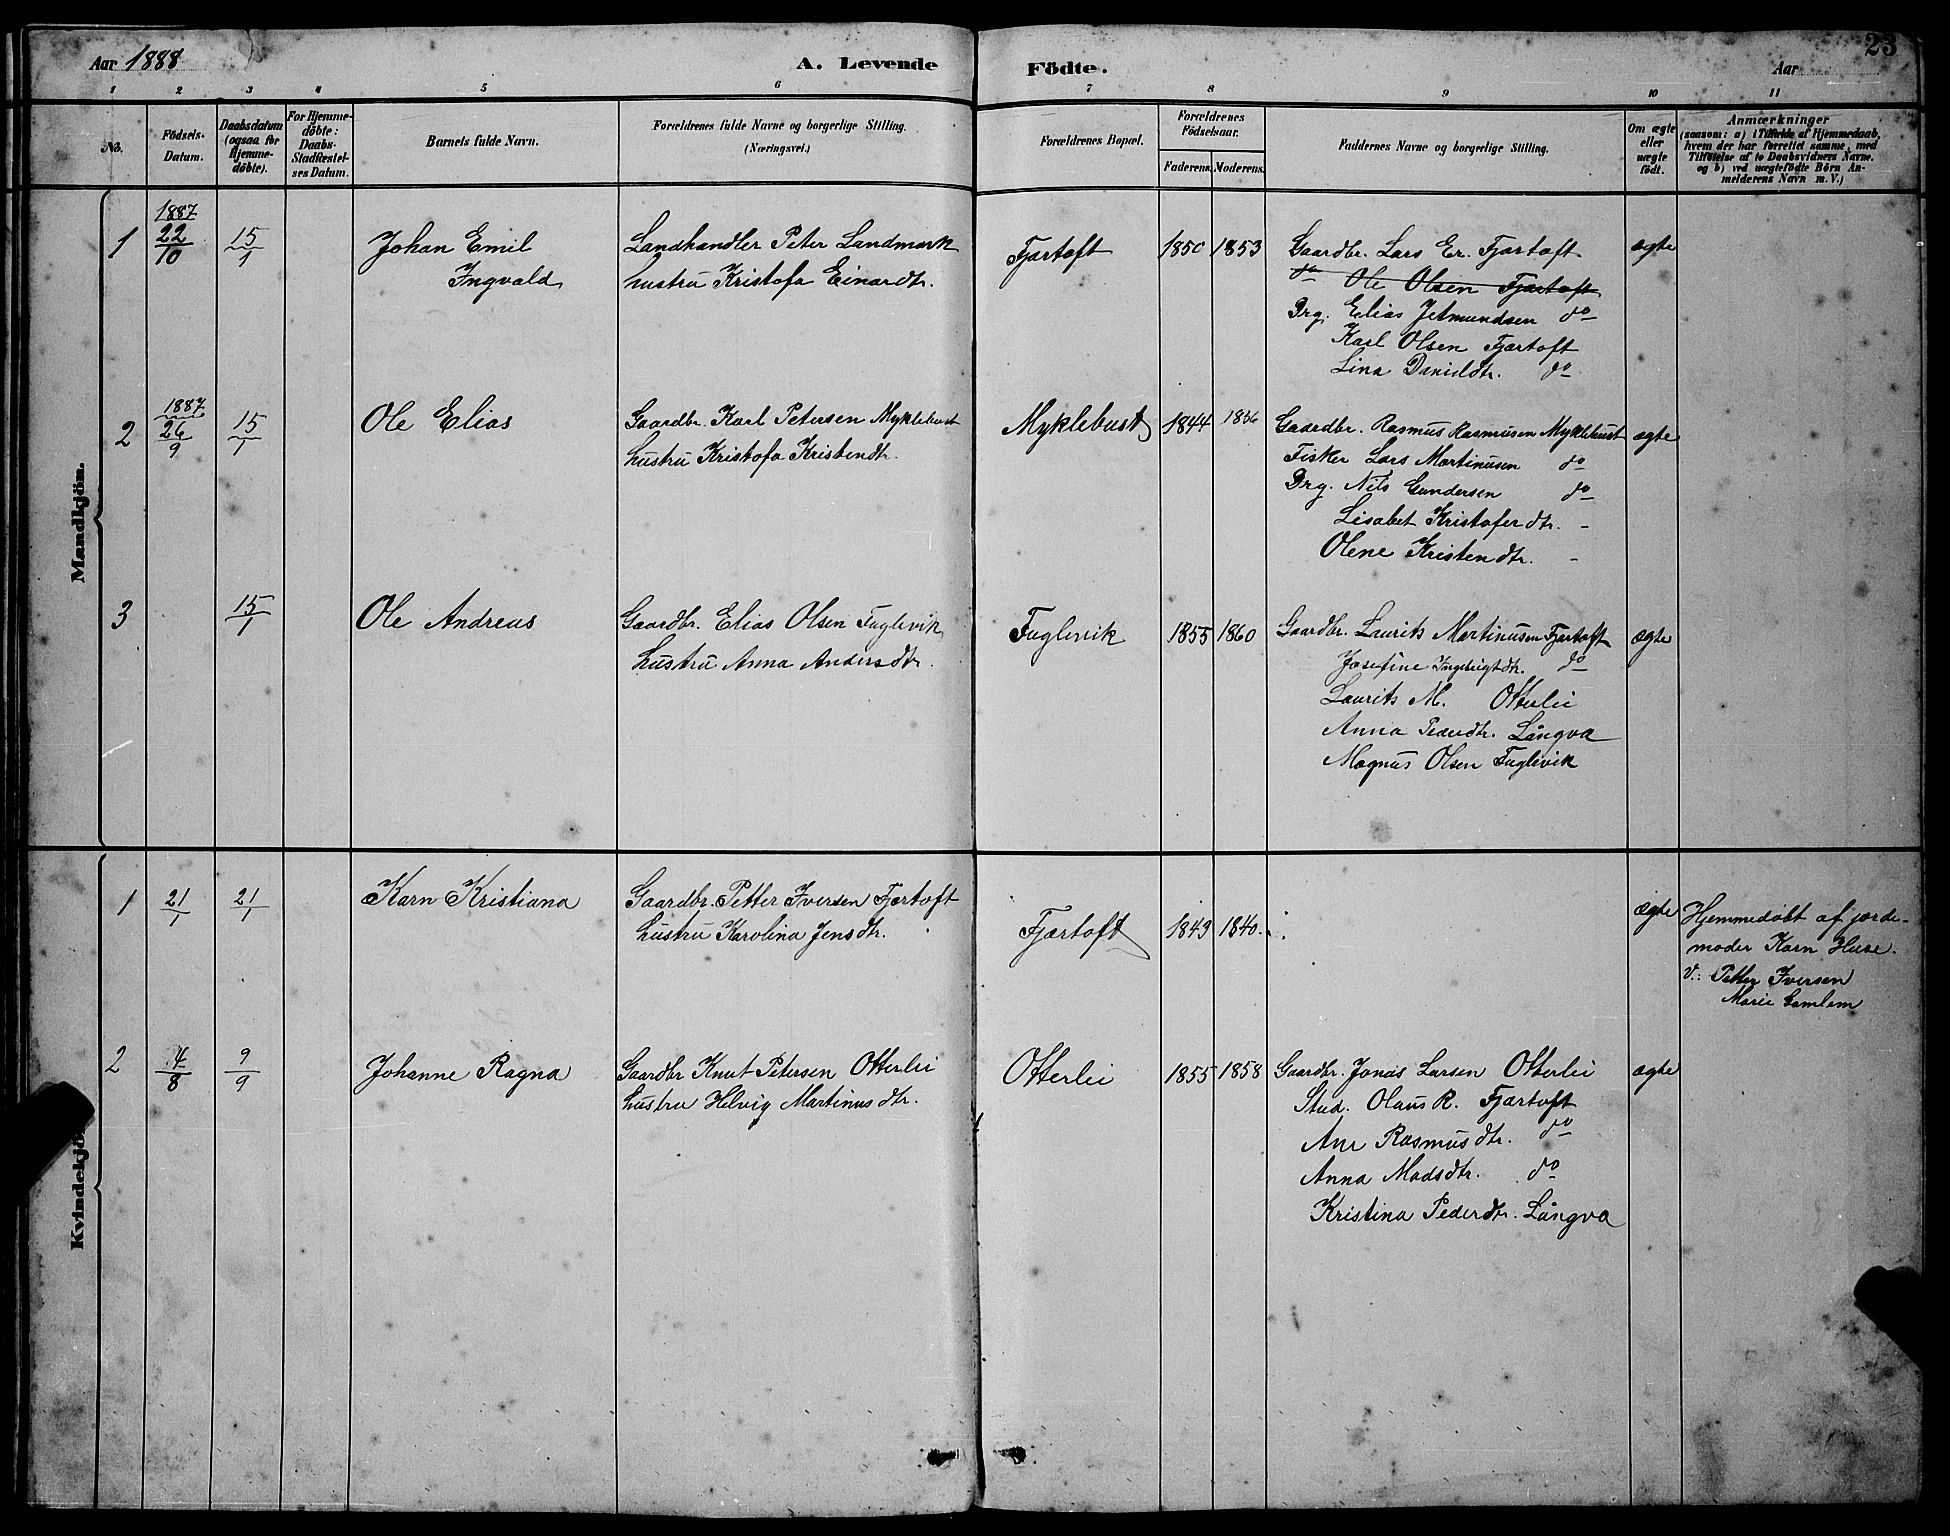 23
Aar 1888
A. Levende
Födte.
Aar
1 2 3 4 5 6 7 8 9 10 11
No.
Födsels-
Datum.
Daabsdatum
(ogsaa for
Hjemme-
döbte).
For Hjemme-
döbte:
Daabs-
Stadfæstel-
ses Datum.
Barnets fulde Navn.
Forældrenes fulde Navne og borgerlige Stilling.
(Næringsvei.)
Forældrenes Bopæl.
Forældrenes
Födselsaar.
Faderens.
Moderens.
Faddernes Navne og borgerlige Stilling.
Om ægte
eller
uægte
født.
Anmærkninger
(saasom: a) i Tilfælde af Hjemmedaab,
hvem der har forrettet samme, med
Tilföielse af to Daabsvidners Navne.
og b) ved uægtefödte Börn An-
melderens Navn m. V.)
Mandkjön.
1
1887
22/10
15/1
Johan Emil
Ingvald
Landhandler Peter Landmark
hustru Kristofa Einardtr.
Fjærtoft
1850
1853
Gaardbr. Lars Er. Fjærtoft
do Ole Olsen Fjærtoft
Drg. Elias Jetmundsen do
Karl Olsen Fjærtoft
Lina Danieldtr. do
ægte
2
1887
26/9
15/1
Ole Elias
Gaardbr. Karl Petersen Myklebust
hustru Kristofa Kristendtr.
Myklebust
1844
1856
Gaardbr. Rasmus Rasmusen Myklebust
Fisker Lars Martinusen do
Drg. Nils Gundersen do
Lisabet Kristoferdtr. -
Olene Kristendtr. -
ægte
3
15/1
Ole Andreas
Gaardbr. Elias Olsen Fuglevik
hustru Anna Andersdtr.
Fuglevik
1855
1860
Gaardbr. Laurits Martinusen Fjærtoft
Josefine Ingebrigtdtr. do
Laurits M. Otterlei
Anna Pederdtr. Långva
Magnus Olsen Fuglevik
ægte
Kvindekjö
1
21/1
21/1
Karn Kristiana
Gaardbr. Petter Iversen Fjærtoft
hustru Karolina Jensdtr.
Fjærtoft
1843
1840
ægte
Hjemmedøbt af jorde-
moder Karn Huse.
V.: Petter Iversen
Marie Gamlem
2
4/8
9/9
Johanne Ragna
Gaardbr Knut Petersen Otterlei
hustru Helvig Martinusdtr.
Otterlei
1855
1858
Gaardbr. Jonas Larsen Otterlei
Stud. Olaus R. Fjærtoft
Ane Rasmusdtr. do
Anna Madsdtr. do
Kristina Pederdtr. Långva
ægte